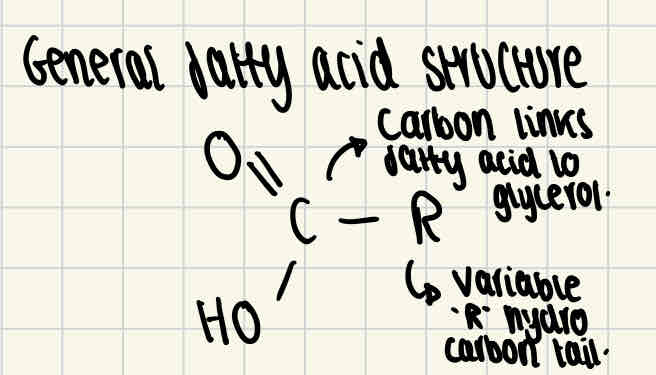 General fatty acid structure
Carbon links
fatty acid to
glycerol.
O
C — R
HO
Variable
"R" hydro
carbon tail.